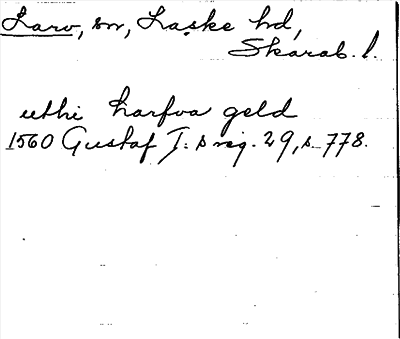 Larv, sn, Laske hd,
Skarab. l.
uthi harfva geld
1560 Gustaf I:s reg. 29, s. 778.